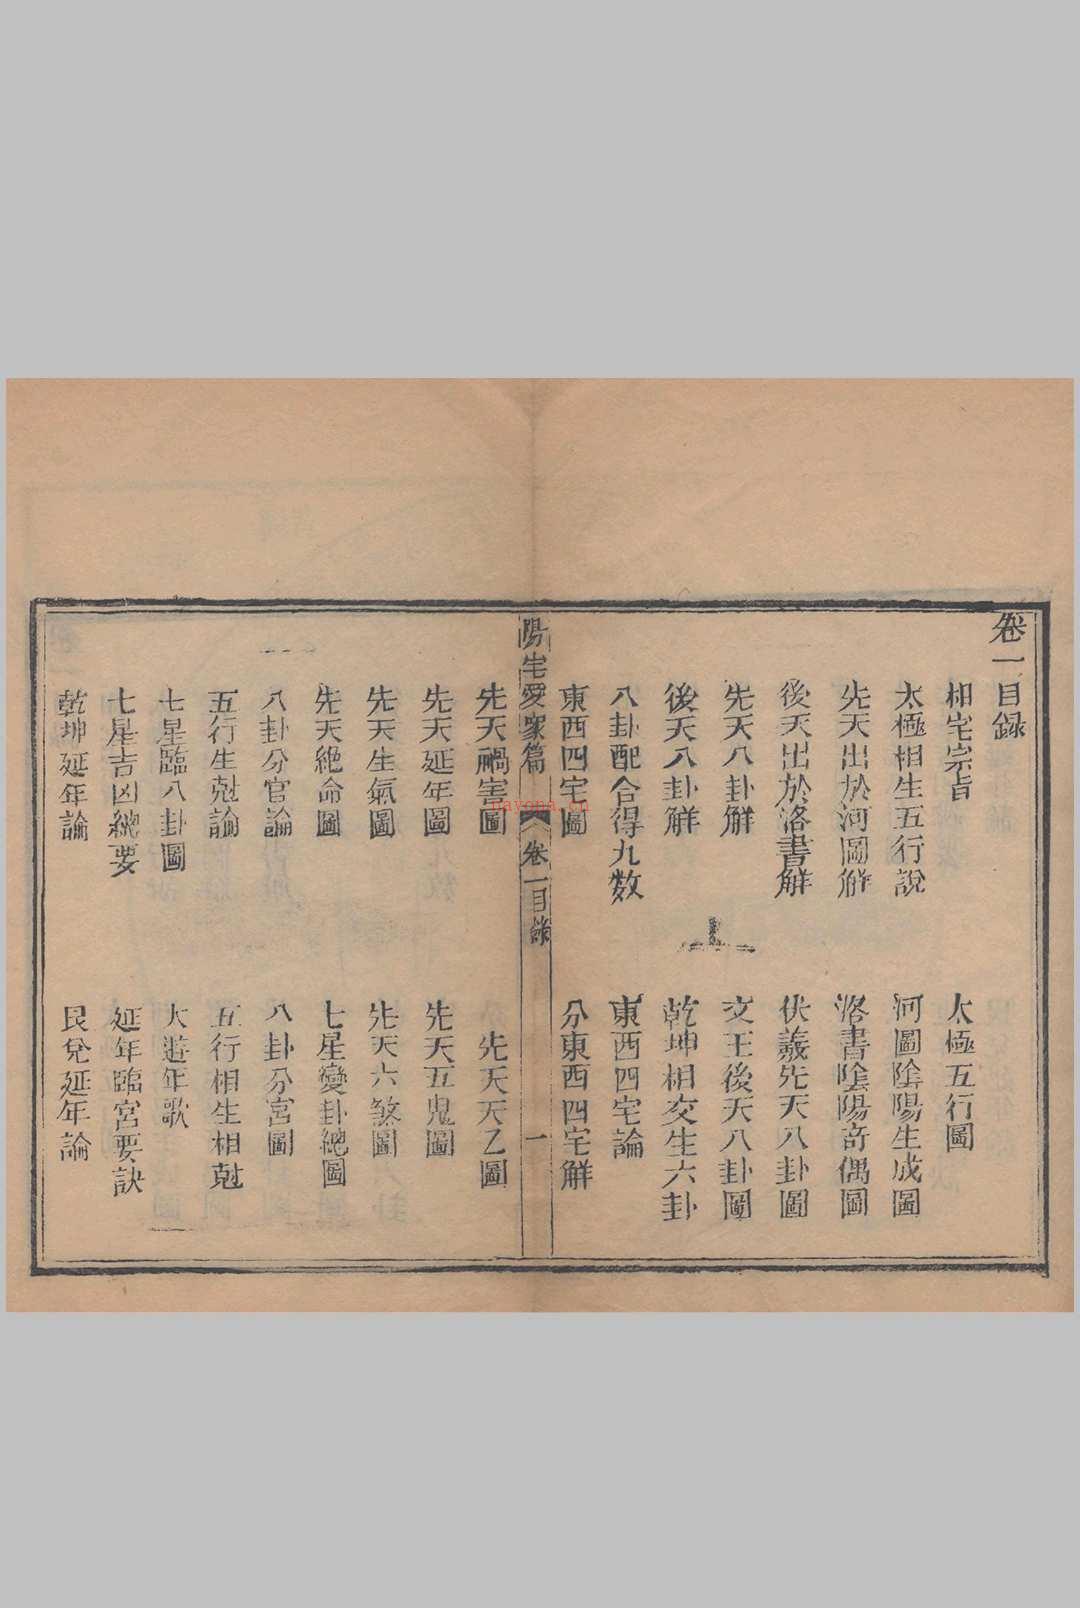 卷一目録
相宅宗旨　太極五行圖
太極相生五行說　河圖陰陽生成圖
先天出於河圖解　洛書陰陽奇偶圖
後天出於洛書解　伏羲先天八卦圖
先天八卦解　文王後天八卦圖
後天八卦解　乾坤相交生六卦
八卦配合得九数　東西四宅論
東西四宅圖　分東西四宅解
陽宅愛家篇　卷一目錄　一
先天禍害圖　先天天乙圖
先天延年圖　先天五鬼圖
先天生氣圖　先天六煞圖
先天絶命圖　七星變卦總圖
八卦分官論　八卦分宮圖
五行生尅論　五行相生相尅
七星臨八卦圖　大遊年歌
七星吉凶總要　延年臨宮要訣
乾坤延年論　艮兌延年論
nayona.cn